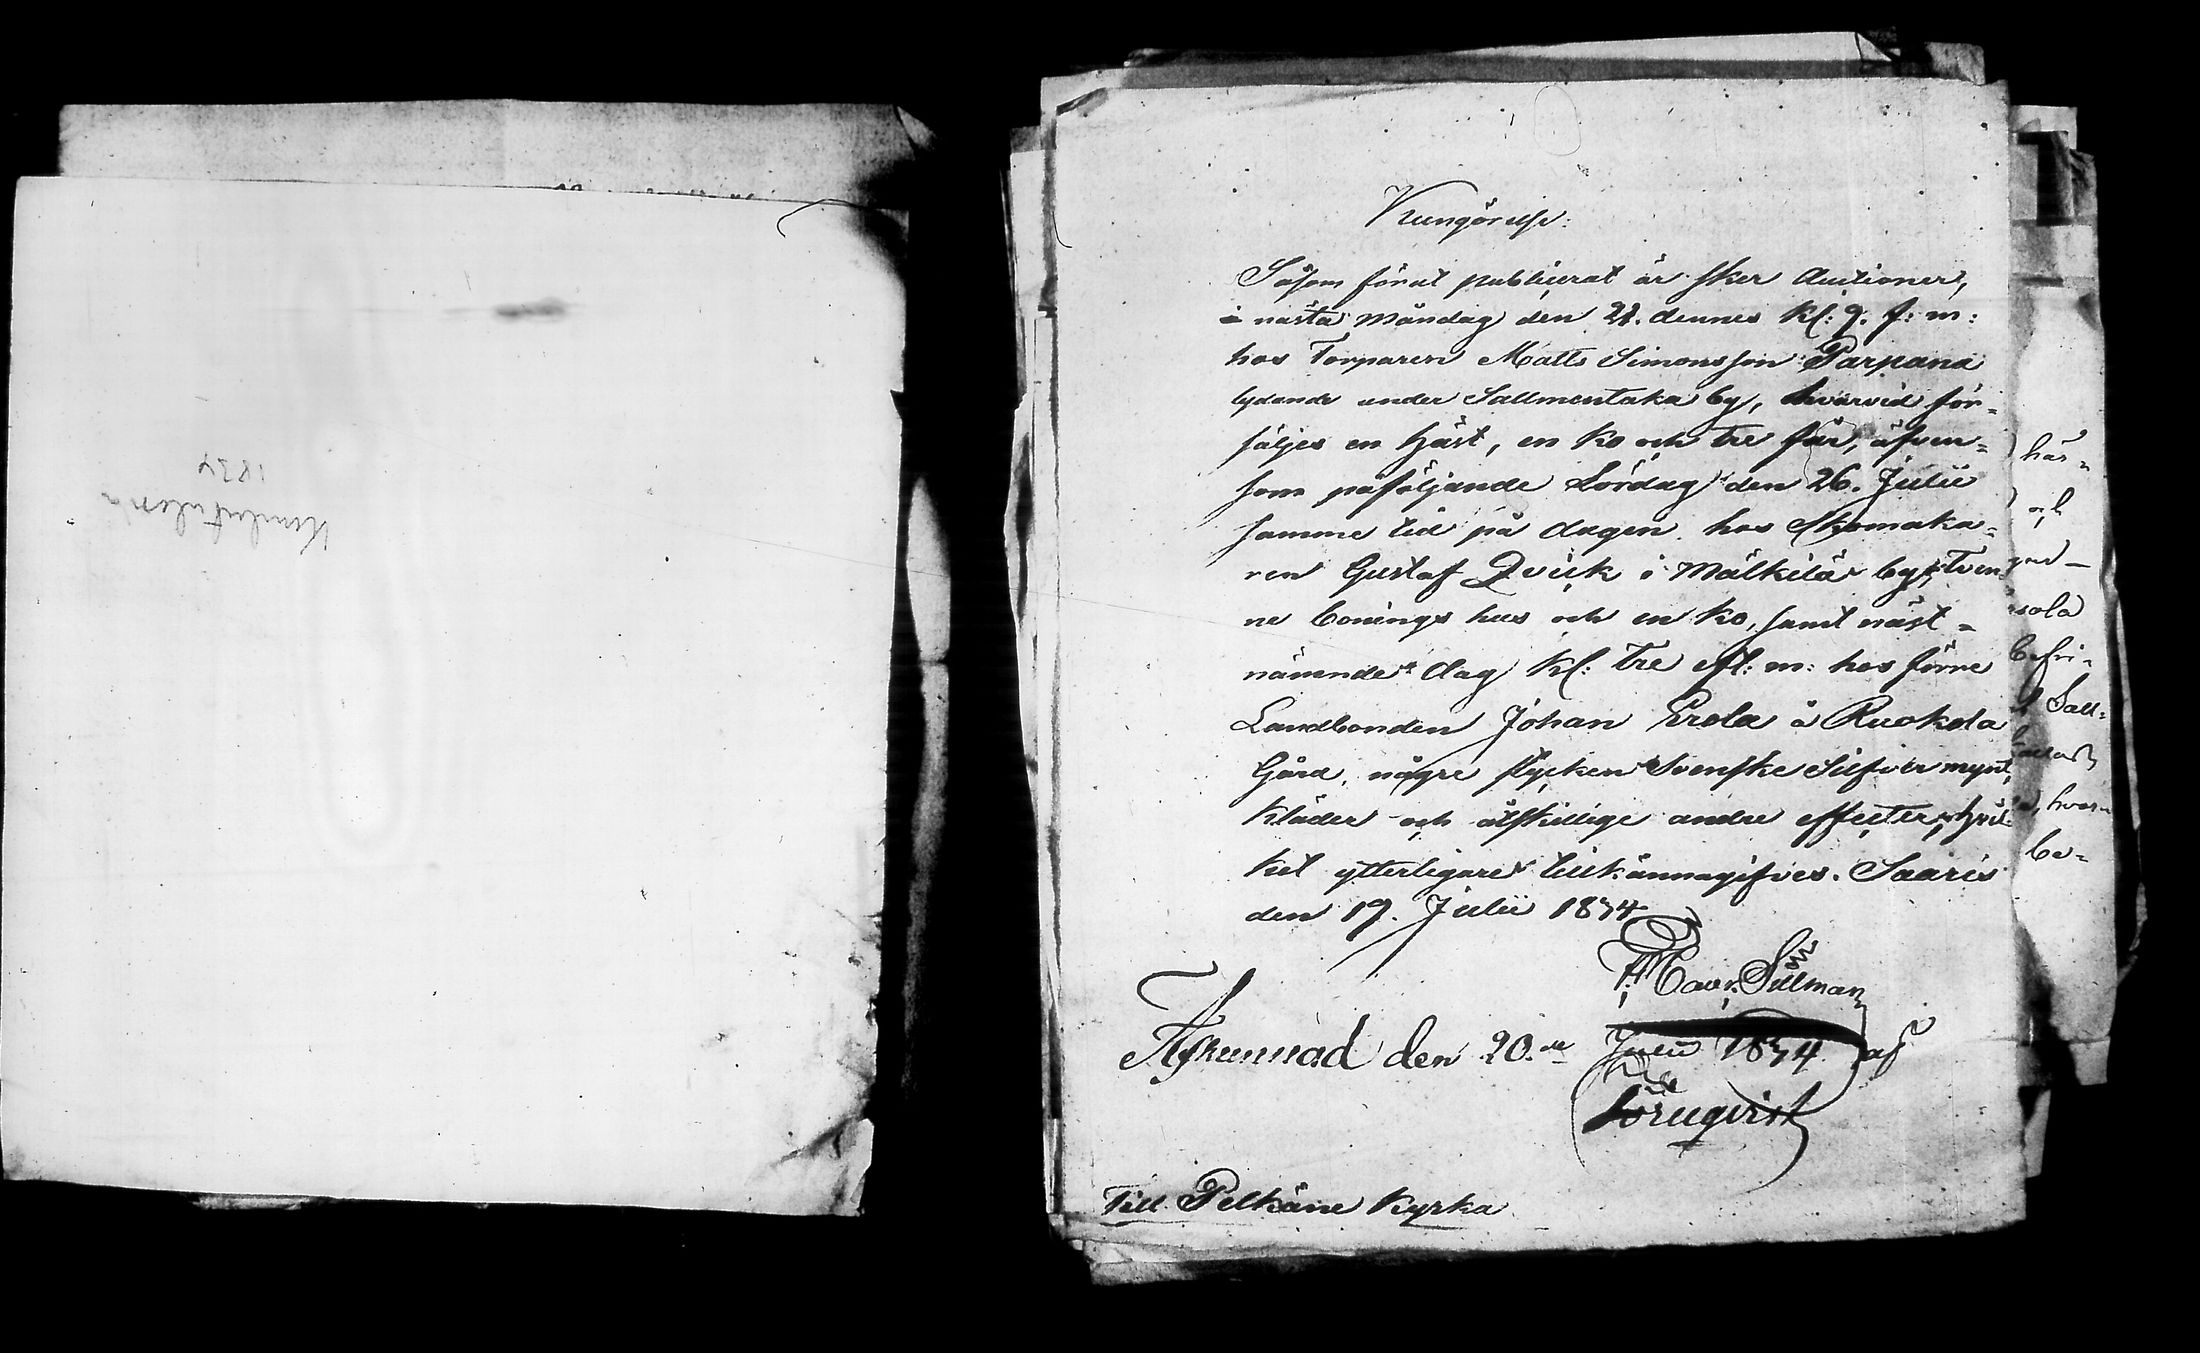 Kungörelse:
Såsom förut publicerat är sker Auctioner,
å nästa Måndag den 21. dennes kl: 9. f: m:
hos Torparen Matts Simonsson Parpana
lydande under Sallmentaka by, hvarvid för=
säljes en häst, en ko och tre får, äfven=
som påföljande Lördag den 26. Julii
samme tid på dagen hos Skomaka=
ren Gustaf Qvick i Mälkilä by, Tven
ne bonings hus och en ko, samt näst=
nämnde dag kl: Tre eft: m: hos förne
Landbonden Johan Erola å Ruokola
Gård, någre stycken Svenske Silfver mynt,
kläder och åtskillige andre effecter, hvil
ket ytterligare tillkännagifves. Saaris
den 19. Julii 1834
Sillman
Afkunnad den 20.de Julii 1834 af
Törnqvist
Till Pelkäne Kyrka
här=
och
sola
befri=
Sall=
hvar=
be=
1834